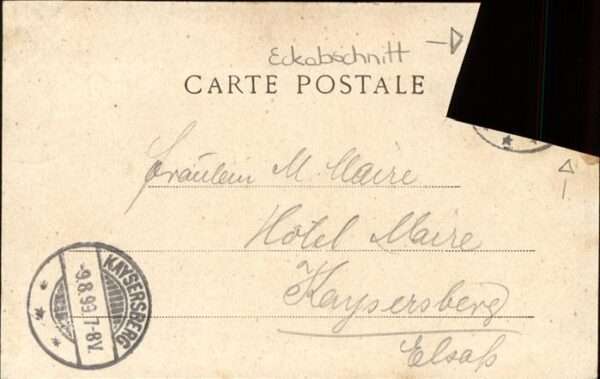 Eckabschnitt
CARTE POSTALE
Fräulein M. Maire
Hôtel Maire
Kaysersberg
Elsaß
KAYSERSBERG
-9.8.99.7-8V.